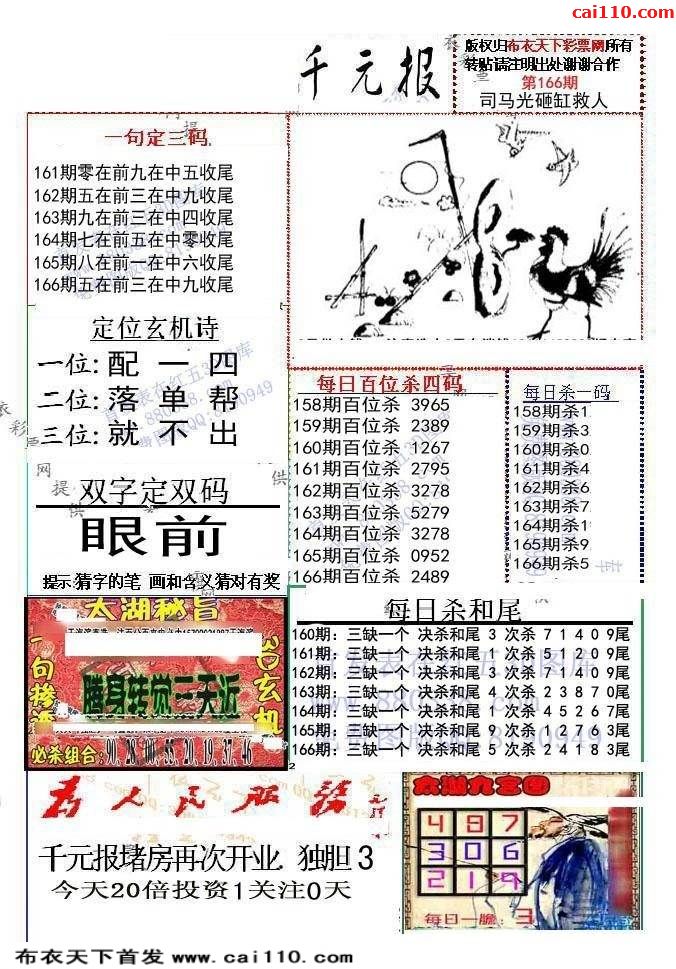 cai110.com
千元报
版权归布衣天下彩票网所有
转贴请注明出处谢谢合作
第166期
司马光砸缸救人
一句定三码
161期零在前九在中五收尾
162期五在前三在中九收尾
163期九在前三在中四收尾
164期七在前五在中零收尾
165期八在前一在中六收尾
166期五在前三在中九收尾
定位玄机诗
一位:配一四
二位:落单帮
三位:就不出
每日百位杀四码
158期百位杀 3965
159期百位杀 2389
160期百位杀 1267
161期百位杀 2795
162期百位杀 3278
163期百位杀 5279
164期百位杀 3278
165期百位杀 0952
166期百位杀 2489
每日杀一码
158期杀1
159期杀3
160期杀0
161期杀4
162期杀6
163期杀7
164期杀1
165期杀9
166期杀5
双字定双码
眼前
提示:猜字的笔 画和含义猜对有奖
太湖秘旨
腾身转觉三天近
必杀组合:90.28.00.55.20.19.37.46
每日杀和尾
160期：三缺一个 决杀和尾 3 次杀 7 1 4 0 9尾
161期：三缺一个 决杀和尾 1 次杀 5 1 2 0 9尾
162期：三缺一个 决杀和尾 3 次杀 7 1 4 0 9尾
163期：三缺一个 决杀和尾 4 次杀 2 3 8 7 0尾
164期：三缺一个 决杀和尾 1 次杀 4 5 2 6 7尾
165期：三缺一个 决杀和尾 9 次杀 1 2 7 6 3尾
166期：三缺一个 决杀和尾 5 次杀 2 4 1 8 3尾
为人民服务
千元报堵房再次开业 独胆 3
今天20倍投资1关注0天
太湖九宫图
4 9 7
3 0 6
2 1 9
每日一胆：3
布衣天下首发 www.cai110.com